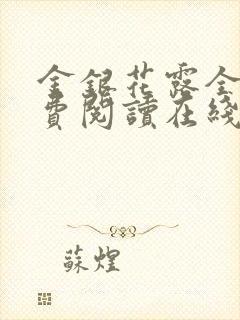 金銀花露全
費閱讀在綫
蘇煌